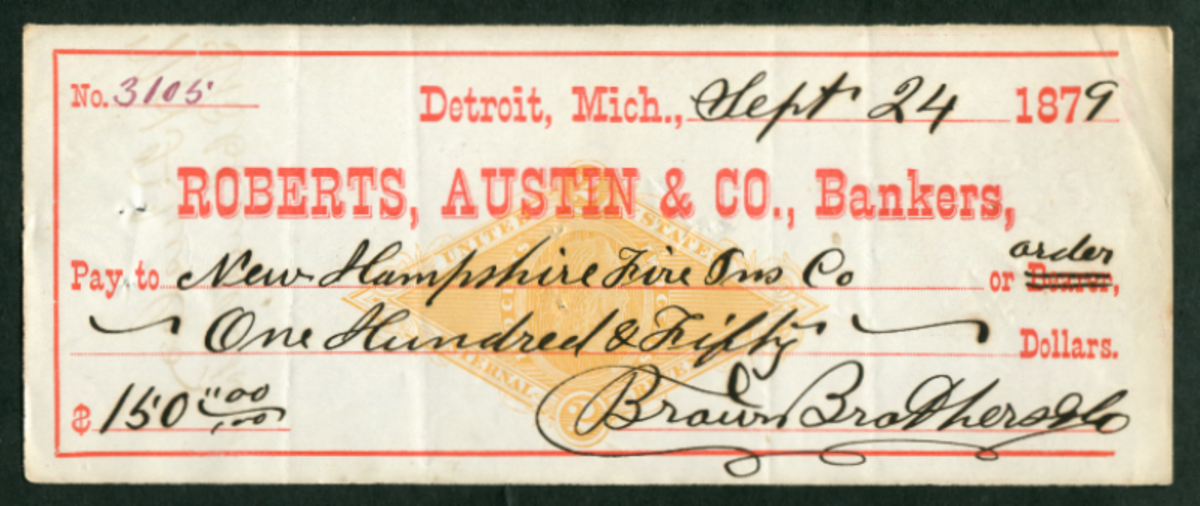 No. 3105 Detroit, Mich., Sept 24 1879
ROBERTS, AUSTIN & CO., Bankers,
order
Pay to New Hampshire Fire Ins Co or Bearer,
One Hundred & Fifty Dollars.
$ 150 "00/00 Brown Brothers & Co
UNITED STATES
INTERNAL REVENUE